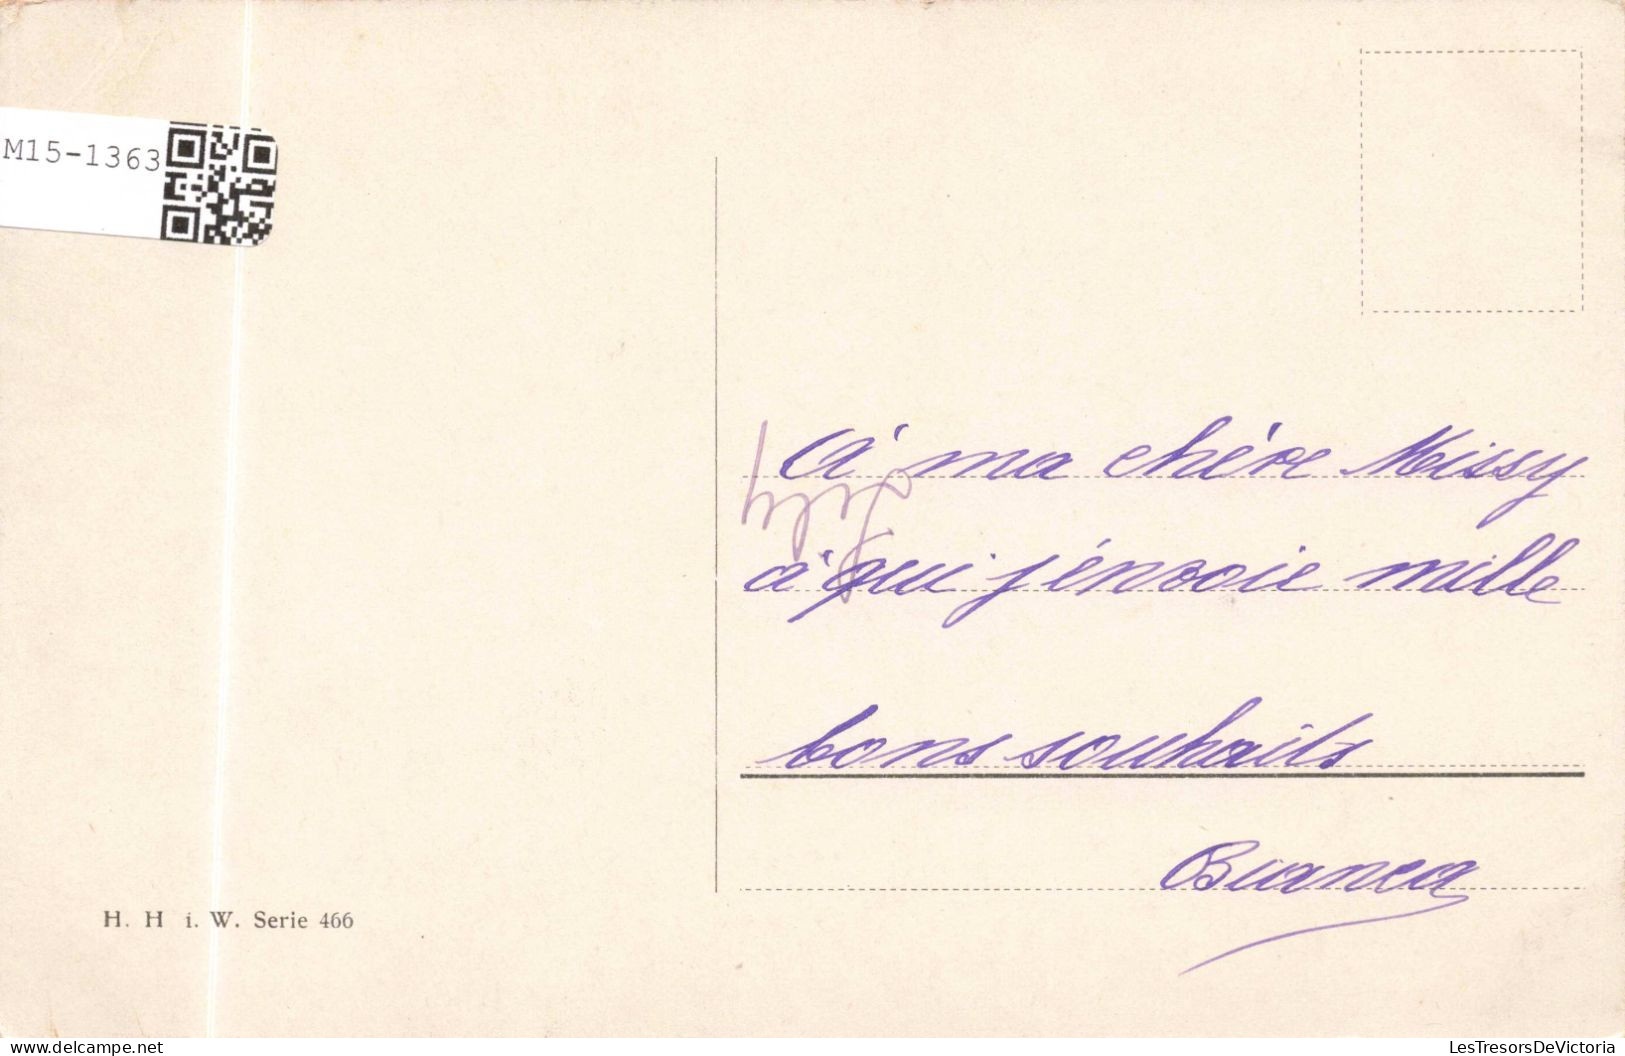 M15-1363
À ma chère Missy
à qui j'énvoie mille
bons souhaits
Bianca
H. H i. W. Serie 466
delcampe.net
LesTresorsDeVictoria